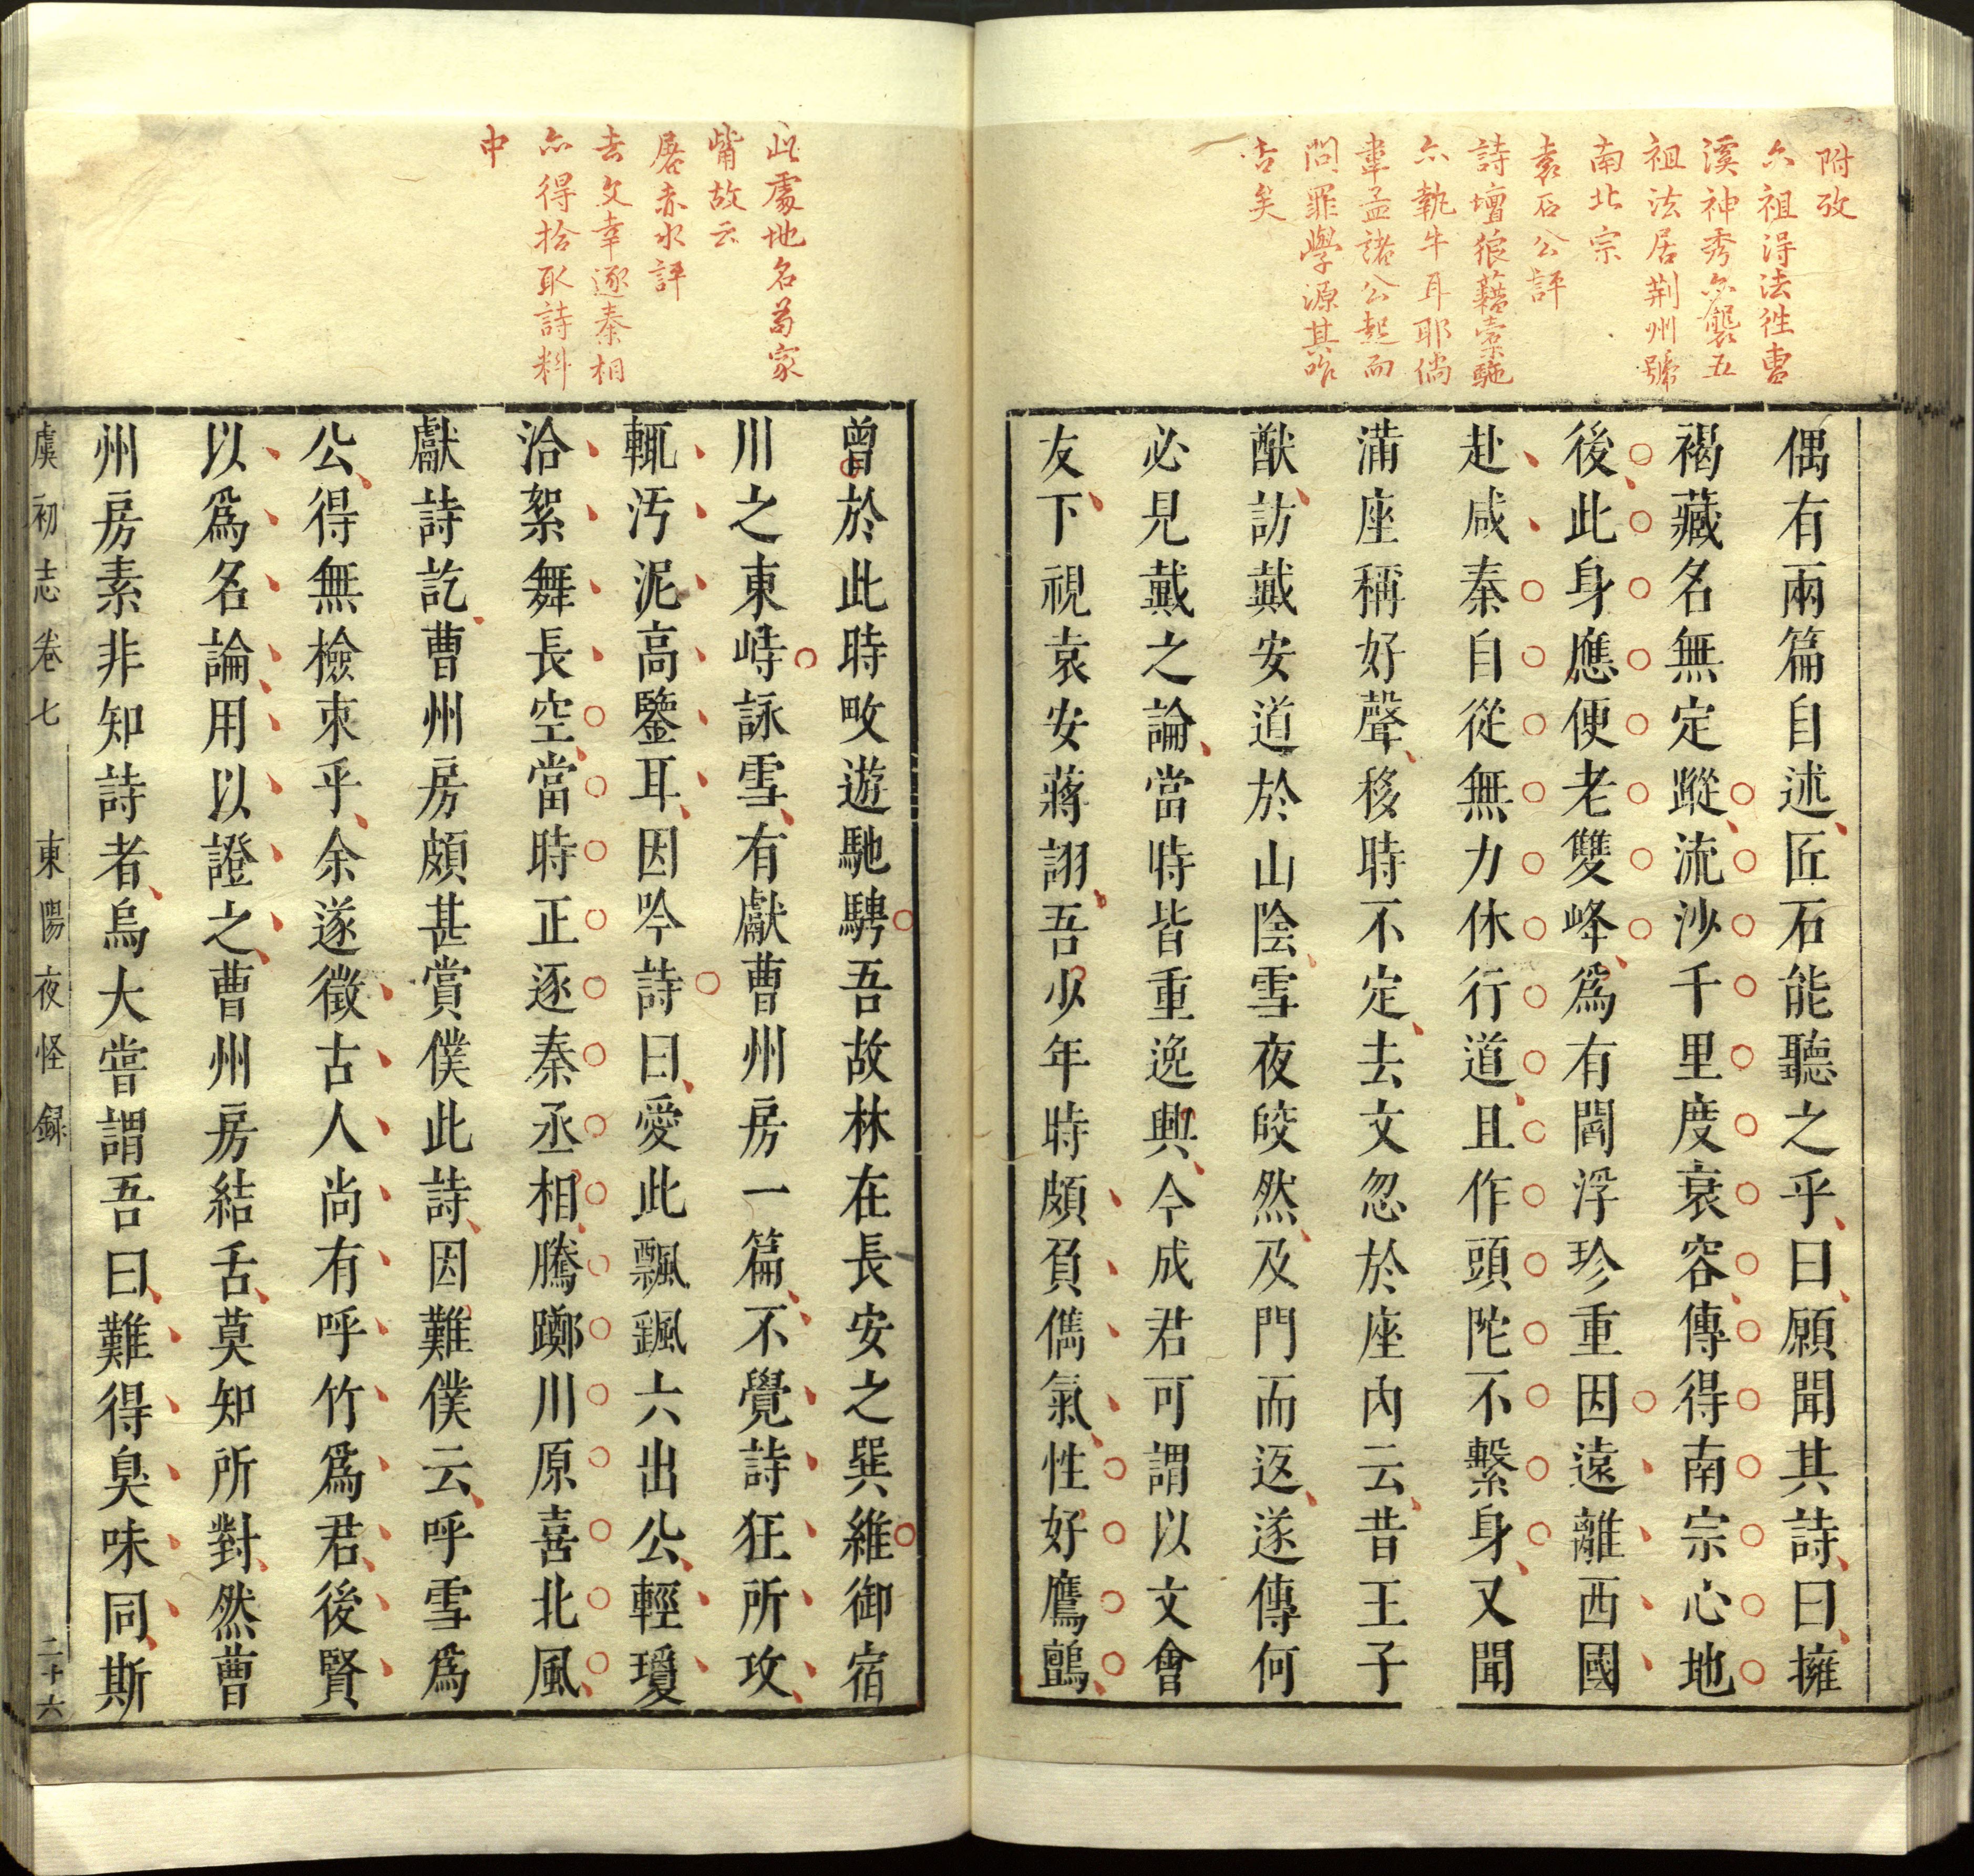 附攷
六祖得法徃曹
溪神秀亦襲五
祖法居荆州號
南北宗
袁石公評
詩壇狼藉橐駞
亦執牛耳耶倘
軰孟諸公起而
問罪學源其咋
舌矣
偶有兩篇自述匠石能聽之乎曰願聞其詩曰擁
褐藏名無定蹤流沙千里度衰容傳得南宗心地
後此身應便老雙峰爲有閻浮珍重因遠離西國
赴咸秦自從無力休行道且作頭陀不繫身又聞
滿座稱好聲移時不定去文忽於座內云昔王子
猷訪戴安道於山陰雪夜皎然及門而返遂傳何
必見戴之論當時皆重逸興今成君可謂以文會
友下視袁安蔣詡吾少年時頗負儁氣性好鷹鸇
此處地名苟家
觜故云
屠赤水評
去文幸逐秦相
亦得拾取詩料
中
曾於此時畋遊馳騁吾故林在長安之巽維御宿
川之東峙詠雪有獻曹州房一篇不覺詩狂所攻
輒汚泥高鑒耳因吟詩曰愛此飄颻六出公輕瓊
洽絮舞長空當時正逐秦丞相騰躑川原喜北風
獻詩訖曹州房頗甚賞僕此詩因難僕云呼雪爲
公得無檢束乎余遂徵古人尚有呼竹爲君後賢
以爲名論用以證之曹州房結舌莫知所對然曹
州房素非知詩者烏大嘗謂吾曰難得臭味同斯
虞初志卷七 東陽夜怪録 二十六